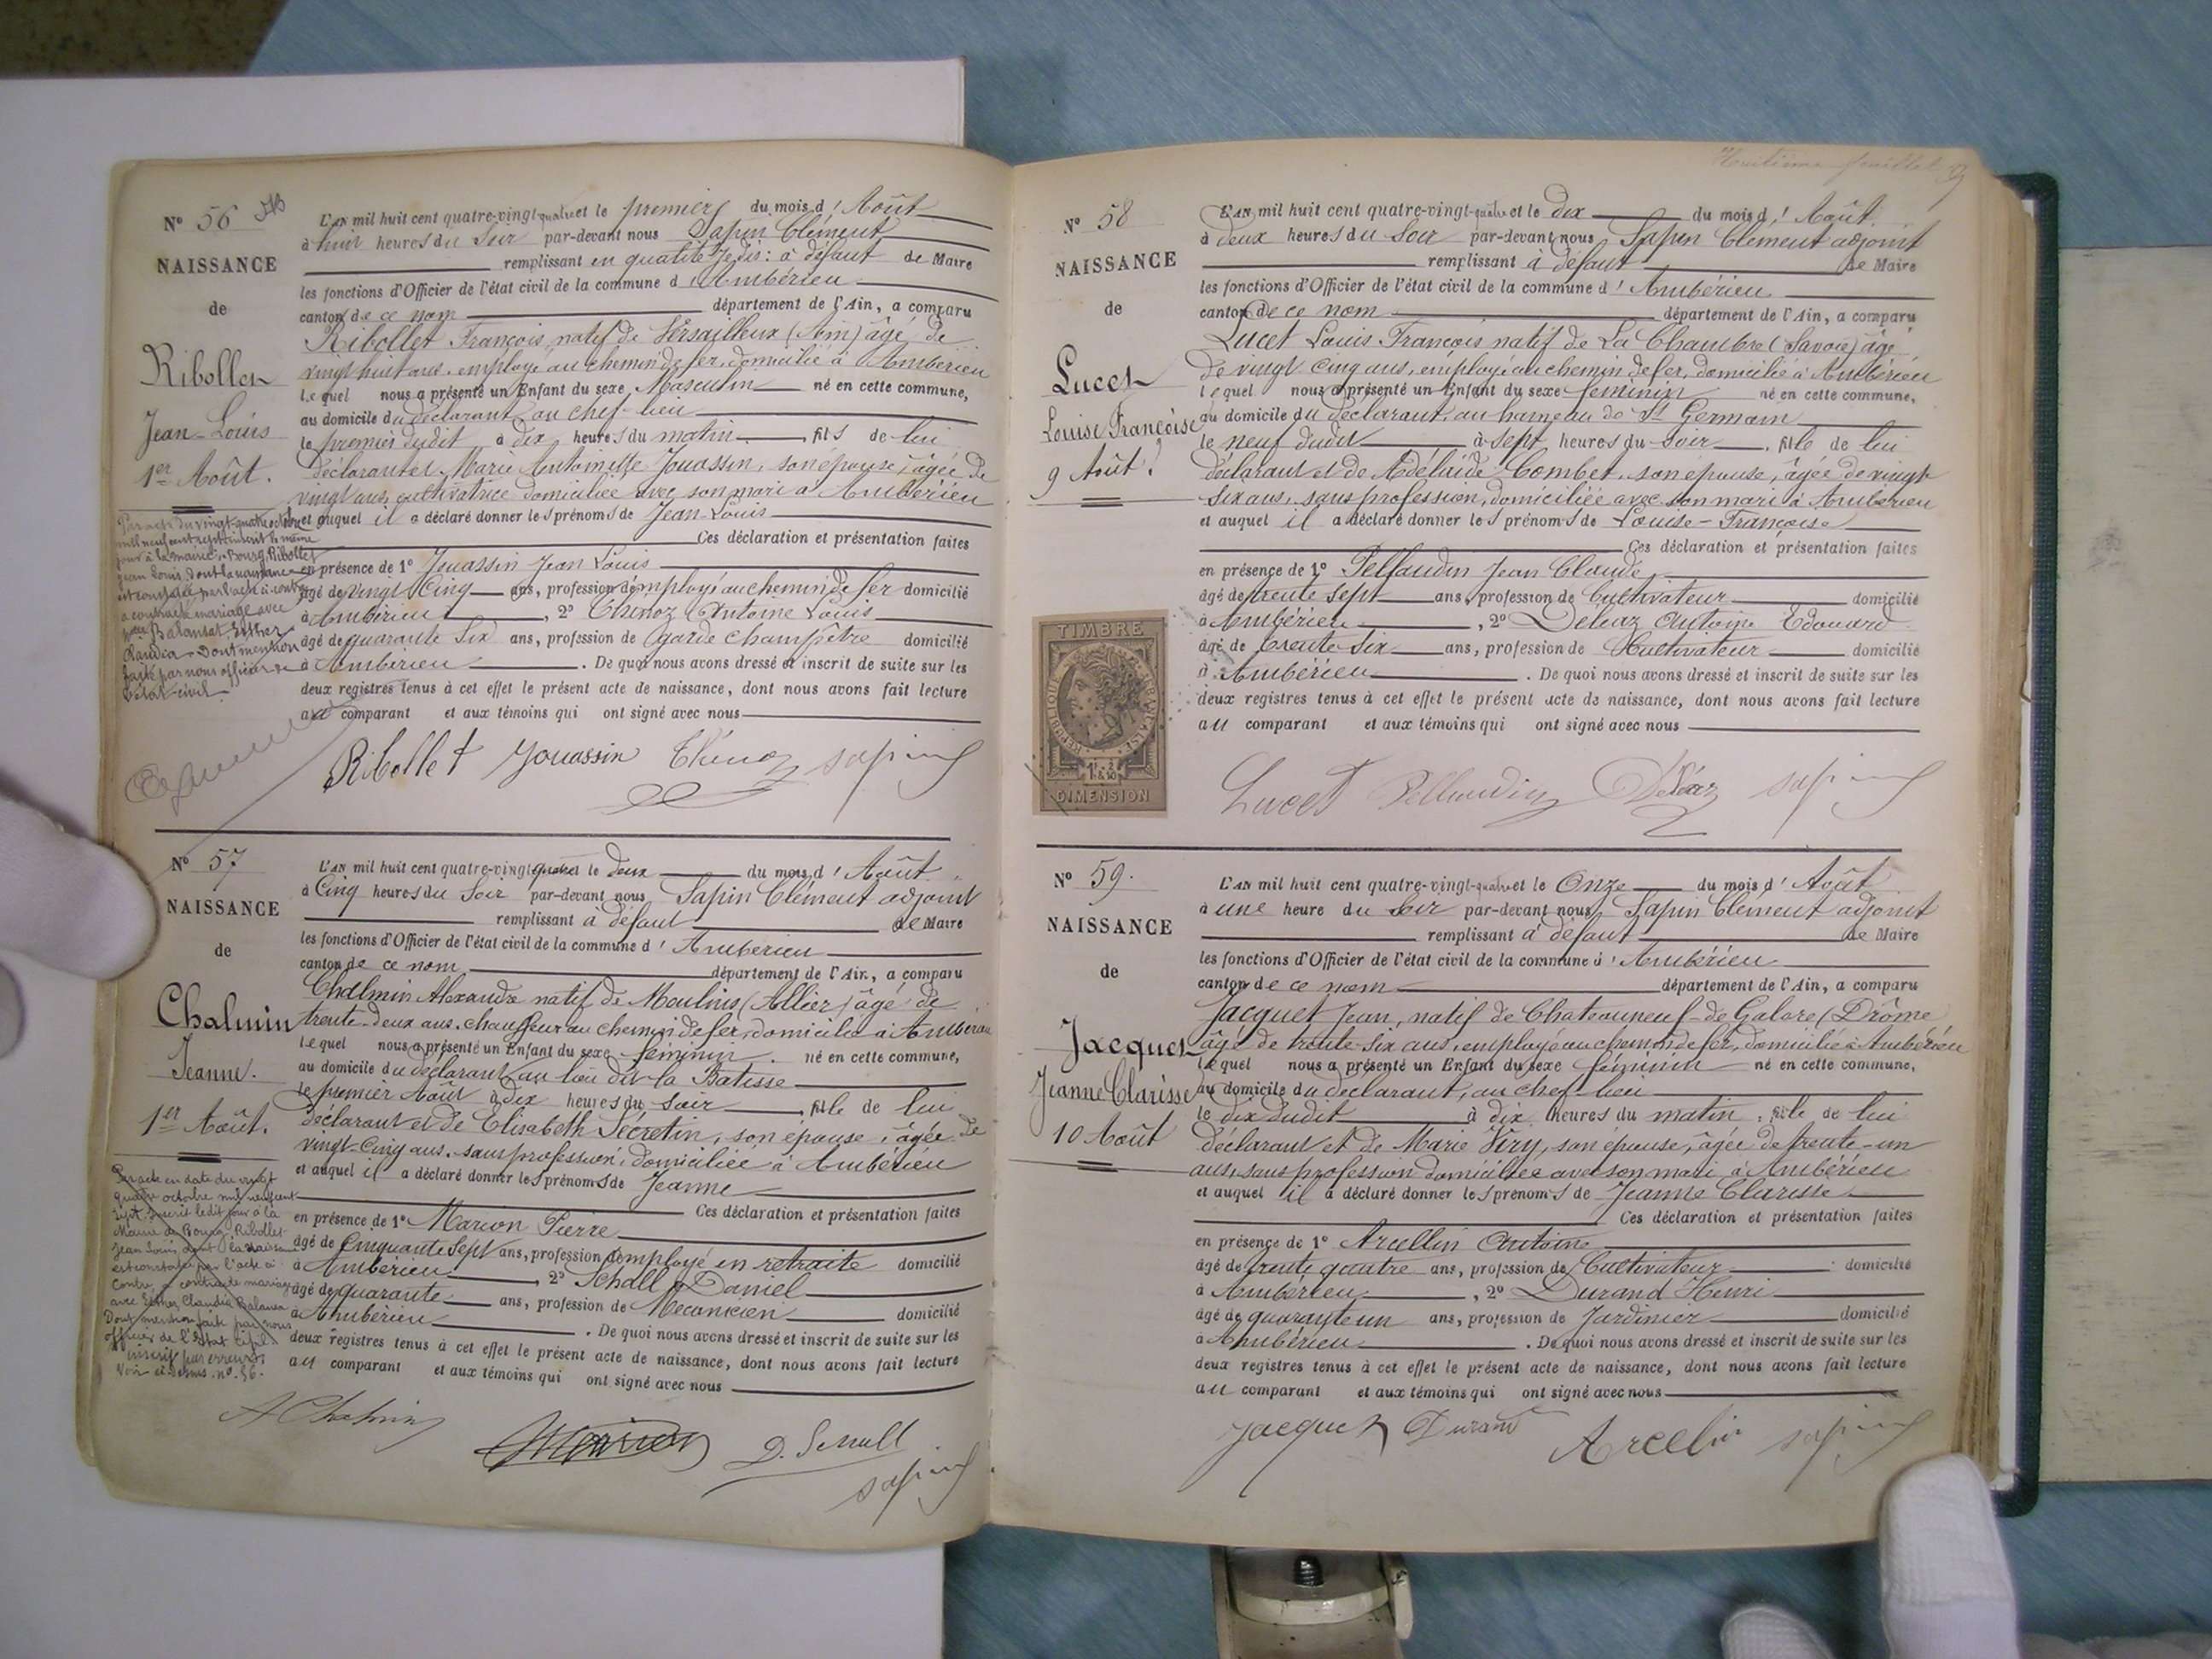 Nº 56
NAISSANCE
de
Ribollet
Jean-Louis
1er Août.
L'AN mil huit cent quatre-vingt-quatre et le premier du mois d'Août
à huit heures du Soir par-devant nous Sapin Clément
remplissant en qualité je dis: à défaut de Maire
les fonctions d'Officier de l'état civil de la commune d'Ambérieu
canton de ce nom département de l'Ain, a comparu
Ribollet François, natif de Versailleux (Ain) âgé de
vingt huit ans, employé au chemin de fer, domicilié à Ambérieu
lequel nous a présenté un Enfant du sexe Masculin né en cette commune,
au domicile du déclarant au chef-lieu
le premier dudit à dix heures du matin, fils de lui
déclarant et Marie Antoinette Jouassin, son épouse, âgée de
vingt ans, cultivatrice domiciliée avec son mari à Ambérieu
et auquel il a déclaré donner les prénoms de Jean-Louis
Ces déclaration et présentation faites
en présence de 1º Jouassin Jean Louis
âgé de vingt Cinq ans, profession d'employé au chemin de fer domicilié
à Ambérieu, 2º Thénoz Antoine Louis
âgé de quarante Six ans, profession de garde champêtre domicilié
à Ambérieu. De quoi nous avons dressé et inscrit de suite sur les
deux registres tenus à cet effet le présent acte de naissance, dont nous avons fait lecture
au comparant et aux témoins qui ont signé avec nous
Par acte du vingt-quatre octobre
mil neuf cent sept inscrit le même
jour à la mairie de Bourg, Ribollet
Jean Louis, dont la naissance
est constatée par l'acte ci-contre
a contracté mariage avec
Balansat, Esther
Claudia - Dont mention
faite par nous officier de
l'état-civil.
Ribollet Jouassin Thénoz Sapin
Nº 57
NAISSANCE
de
Chalmin
Jeanne.
1er Août.
L'AN mil huit cent quatre-vingt-quatre et le deux du mois d'Août
à Cinq heures du Soir par-devant nous Sapin Clément adjoint
remplissant à défaut de Maire
les fonctions d'Officier de l'état civil de la commune d'Ambérieu
canton de ce nom département de l'Ain, a comparu
Chalmin Alexandre natif de Moulins (Allier) âgé de
trente-deux ans, chauffeur au chemin de fer, domicilié à Ambérieu
lequel nous a présenté un Enfant du sexe féminin. né en cette commune,
au domicile du déclarant au lieu dit la Batisse
le premier Août à dix heures du soir, fille de lui
déclarant et de Elisabeth Secretin, son épouse, âgée de
vingt-Cinq ans, sans profession, domiciliée à Ambérieu
et auquel il a déclaré donner les prénoms de Jeanne
Ces déclaration et présentation faites
en présence de 1º Marion Pierre
âgé de Cinquante Sept ans, profession d'employé en retraite domicilié
à Ambérieu, 2º Schall Daniel
âgé de quarante ans, profession de Mécanicien domicilié
à Ambérieu. De quoi nous avons dressé et inscrit de suite sur les
deux registres tenus à cet effet le présent acte de naissance, dont nous avons fait lecture
au comparant et aux témoins qui ont signé avec nous
Par acte en date du vingt
quatre octobre mil neuf cent
sept inscrit ledit jour à la
Mairie de Bourg, Ribollet
Jean Louis, dont la naissance
est constatée par l'acte ci-
contre, a contracté mariage
avec Esther Claudia Balansa
Dont mention faite par nous
officier de l'Etat Civil.
inscrit par erreur,
Voir ci-dessus nº 56.
A Chalmin Marion D. Schall
Sapin
Nº 58
NAISSANCE
de
Lucet
Louise Françoise
9 Août.
L'AN mil huit cent quatre-vingt-quatre et le dix du mois d'Août
à deux heures du Soir par-devant nous Sapin Clément adjoint
remplissant à défaut de Maire
les fonctions d'Officier de l'état civil de la commune d'Ambérieu
canton de ce nom département de l'Ain, a comparu
Lucet Louis François natif de La Chambre (Savoie) âgé
de vingt cinq ans, employé au chemin de fer, domicilié à Ambérieu
lequel nous a présenté un Enfant du sexe féminin né en cette commune,
au domicile du déclarant, au hameau de St Germain
le neuf dudit à sept heures du soir, fille de lui
déclarant et de Adélaïde Combet, son épouse, âgée de vingt
six ans, sans profession, domiciliée avec son mari à Ambérieu
et auquel il a déclaré donner les prénoms de Louise-Françoise
Ces déclaration et présentation faites
en présence de 1º Pellaudin Jean Claude
âgé de trente sept ans, profession de Cultivateur domicilié
à Ambérieu, 2º Deléaz Antoine Edouard
âgé de trente-six ans, profession de Cultivateur domicilié
à Ambérieu. De quoi nous avons dressé et inscrit de suite sur les
deux registres tenus à cet effet le présent acte de naissance, dont nous avons fait lecture
au comparant et aux témoins qui ont signé avec nous
TIMBRE
REPUBLIQUE FRANÇAISE
DIMENSION
Lucet Pellaudin Deléaz Sapin
Nº 59.
NAISSANCE
de
Jacquet
Jeanne Clarisse
10 Août
L'AN mil huit cent quatre-vingt-quatre et le Onze du mois d'Août
à une heure du Soir par-devant nous Sapin Clément adjoint
remplissant à défaut de Maire
les fonctions d'Officier de l'état civil de la commune d'Ambérieu
canton de ce nom département de l'Ain, a comparu
Jacquet Jean, natif de Chateauneuf-de Galore (Drôme
âgé de trente-six ans, employé au chemin de fer, domicilié à Ambérieu
lequel nous a présenté un Enfant du sexe féminin né en cette commune,
au domicile du déclarant, au chef-lieu
le dix dudit à dix heures du matin, fille de lui
déclarant et de Marie Viry, son épouse, âgée de trente-un
ans, sans profession domiciliée avec son mari à Ambérieu
et auquel il a déclaré donner les prénoms de Jeanne Clarisse
Ces déclaration et présentation faites
en présence de 1º Arcellin Antoine
âgé de trente quatre ans, profession de Cultivateur domicilié
à Ambérieu, 2º Durand Henri
âgé de quarante un ans, profession de Jardinier domicilié
à Ambérieu. De quoi nous avons dressé et inscrit de suite sur les
deux registres tenus à cet effet le présent acte de naissance, dont nous avons fait lecture
au comparant et aux témoins qui ont signé avec nous
Jacquet Durand Arcelin Sapin